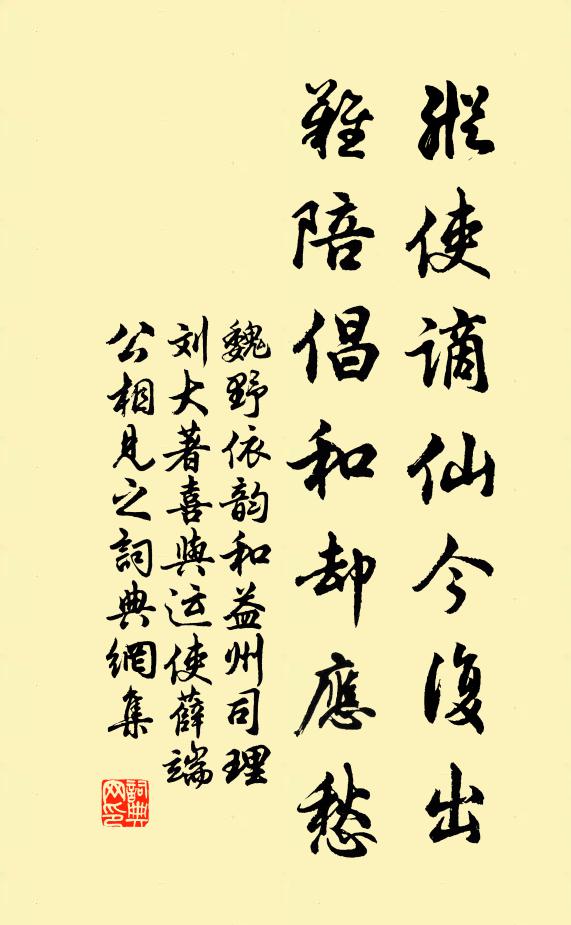 縱使謫仙今復出
難陪倡和却應愁
魏野依韵和益州司理
刘大著喜與运使薛端
公相見之詞典網集
詞典网印